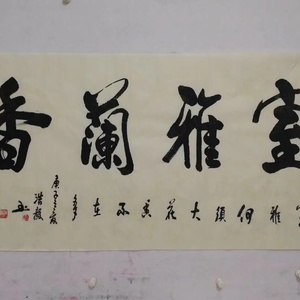 室雅蘭香
室雅何須大花香不在多
庚子之